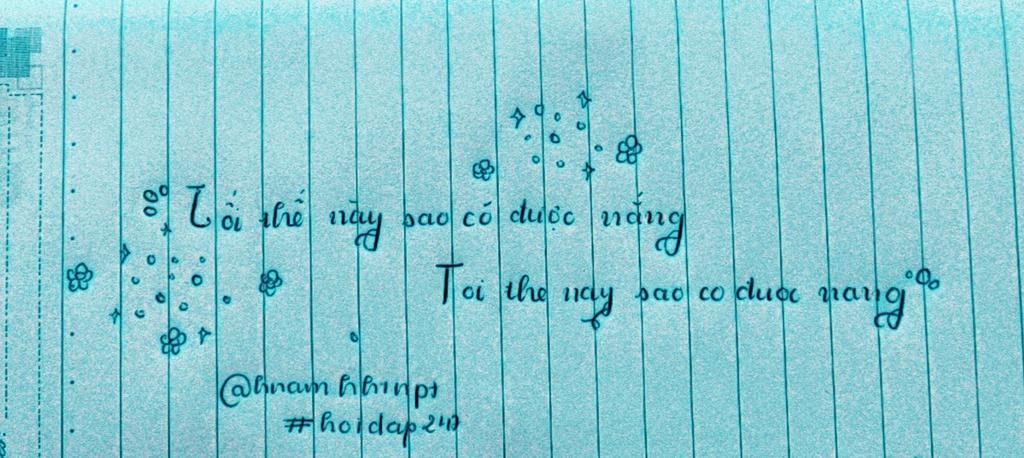 Tồi thế này sao có được nắng
Toi the nay sao co duoc nang
@hnamhhinpt
#hoidap247